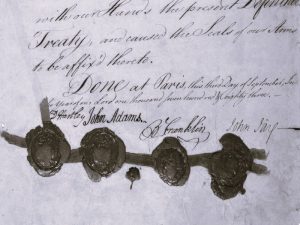 with our Hands the present Definitive
Treaty, and caused the Seals of our Arms
to be affix'd thereto.
Done at Paris, this third Day of September, In
the Year of our Lord one thousand seven hundred & eighty three.
D Hartley John Adams. B Franklin John Jay